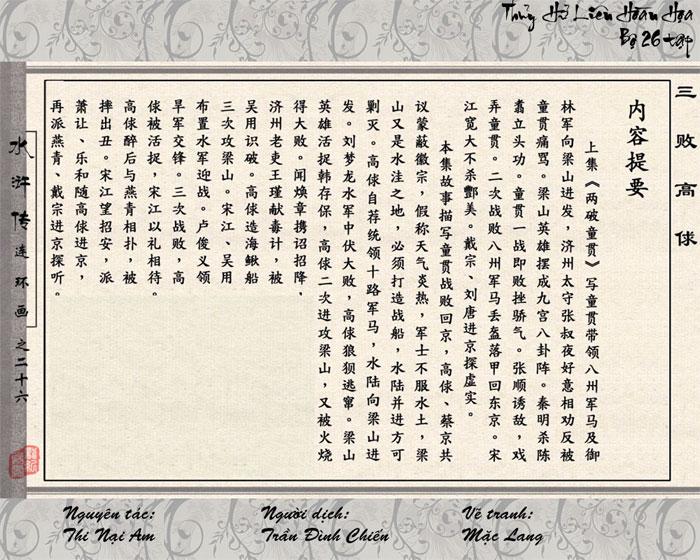 Thủy Hử Liên Hoàn Họa
Bộ 26 tập
三败高俅
内容提要
上集《两破童贯》写童贯带领八州军马及御
林军向梁山进发，济州太守张叔夜好意相劝反被
童贯痛骂。梁山英雄摆成九宫八卦阵。秦明杀陈
翥立头功。童贯一战即败挫骄气。张顺诱敌，戏
弄童贯。二次战败八州军马丢盔落甲回东京。宋
江宽大不杀酆美。戴宗、刘唐进京探虚实。
本集故事描写童贯战败回京，高俅、蔡京共
议蒙蔽徽宗，假称天气炎热，军士不服水土，梁
山又是水洼之地，必须打造战船，水陆并进方可
剿灭。高俅自荐统领十路军马，水陆向梁山进
发。刘梦龙水军中伏大败，高俅狼狈逃窜。梁山
英雄活捉韩存保，高俅二次进攻梁山，又被火烧
得大败。闻焕章携诏招降，
济州老吏王瑾献毒计，被
吴用识破。高俅造海鳅船
三次攻梁山。宋江、吴用
布置水军迎战。卢俊义领
旱军交锋。三次战败，高
俅被活捉，宋江以礼相待。
高俅醉后与燕青相扑，被
摔出丑。宋江望招安，派
萧让、乐和随高俅进京，
再派燕青、戴宗进京探听。
水浒传连环画之二十六
Nguyên tác:
Thi Nại Am
Người dịch:
Trần Đình Chiến
Vẽ tranh:
Mặc Lang